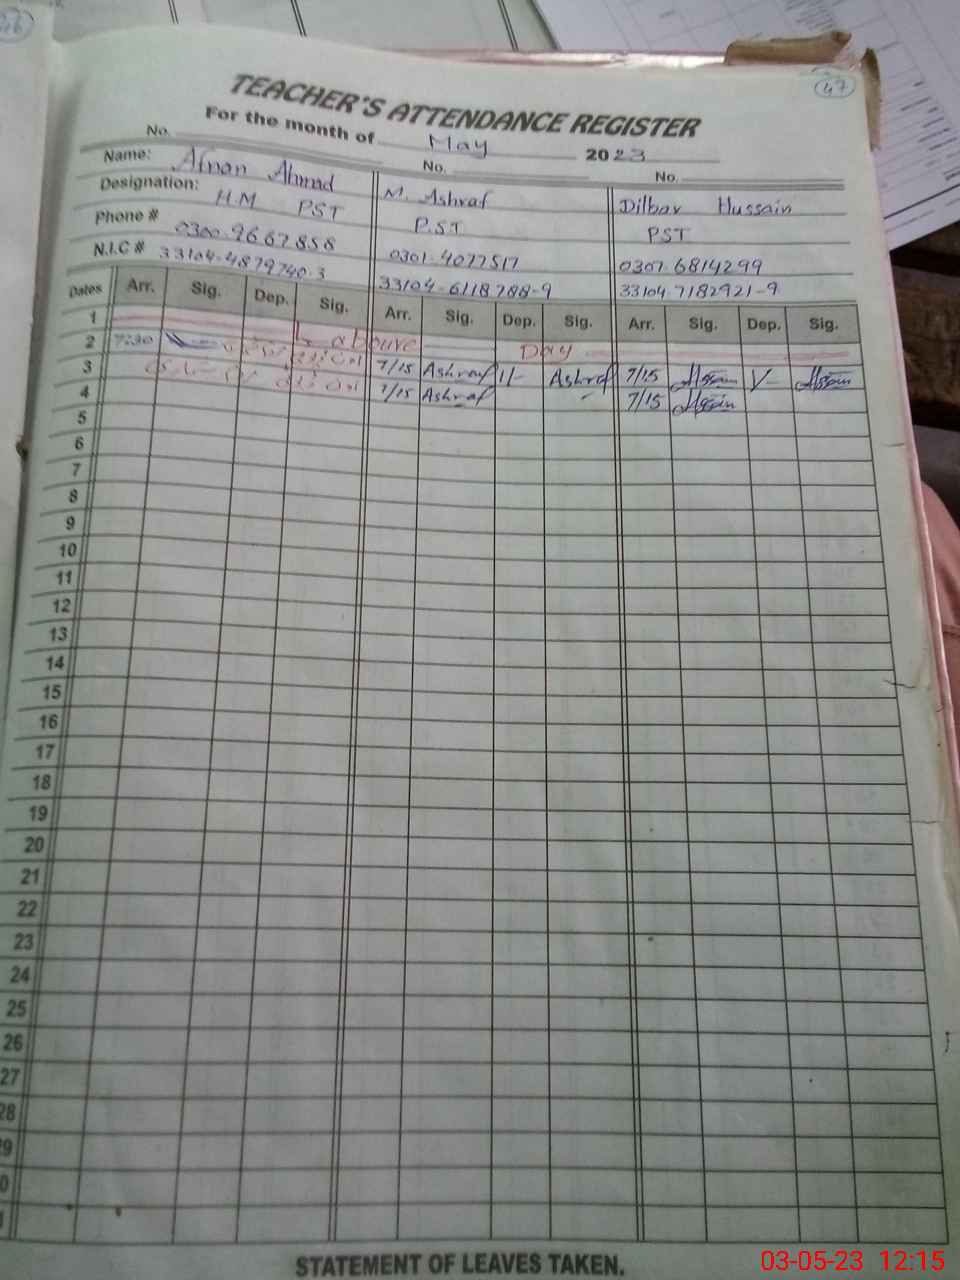 47
TEACHER'S ATTENDANCE REGISTER
For the month of May 2023
No. No. No.
Name: Afnan Ahmad M. Ashraf Dilbar Hussain
Designation: H.M PST P.ST PST
Phone # 0300-9667858 0301-4077517 0307-6814299
N.I.C # 33104-4879740-3 33104-6118788-9 33104-7182921-9
Dates Arr. Sig. Dep. Sig. Arr. Sig. Dep. Sig. Arr. Sig. Dep. Sig.
1 Day
2 7:30 7/15 Ashraf 1/- Ashraf 7/15
3 7/15 Ashraf 7/15
4
5
6
7
8
9
10
11
12
13
14
15
16
17
18
19
20
21
22
23
24
25
26
27
28
STATEMENT OF LEAVES TAKEN.
03-05-23 12:15